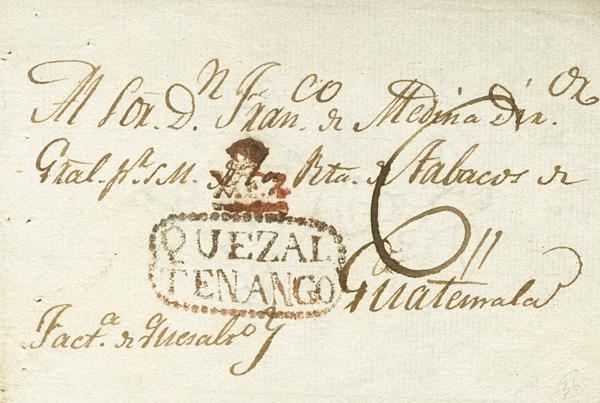 Al Sor. Dn. Franco. de Medina Dir.or
Gral. pr. S.M. de la Rta. de Tabacos de
6
QUEZAL
TENANGO
Guatemala
Facta. de Quesalto
36